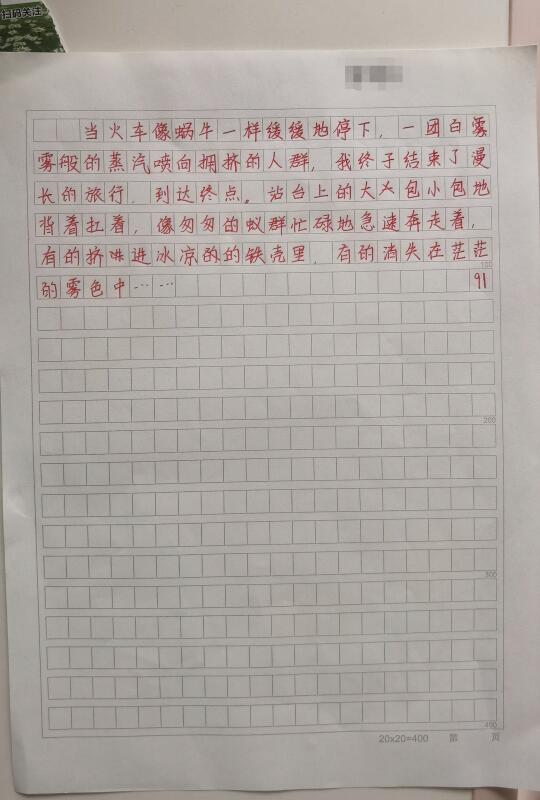 扫码关注
当火车像蜗牛一样缓缓地停下，一团白雾
雾般的蒸汽喷向拥挤的人群，我终于结束了漫
长的旅行，到达终点。站台上的大人包小包地
背着扛着，像匆匆的蚁群忙碌地急速奔走着，
有的挤进进冰凉的的铁壳里，有的消失在茫茫
100
的雾色中…… 91
200
300
400
20x20=400 第 页